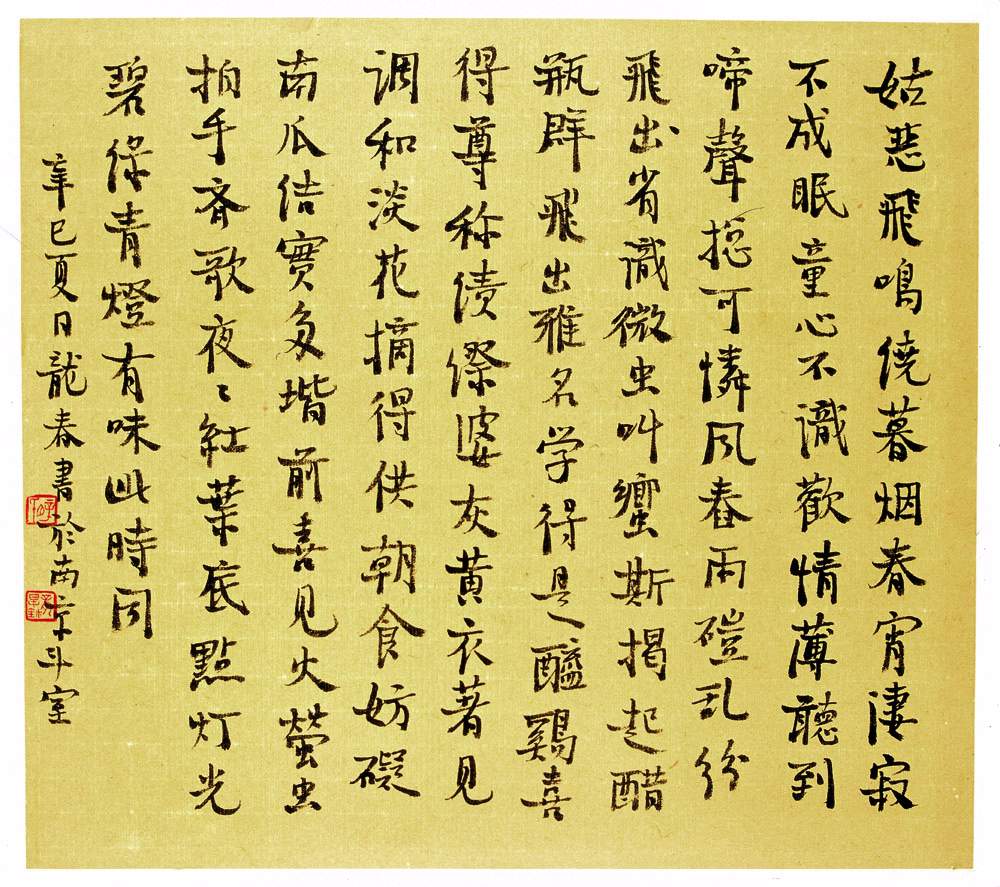 姑惡飛鳴繞暮烟春宵淒寂
不成眠童心不識歡情薄聽到
啼聲揔可憐風舂雨磑乱紛
飛出省識微虫叫蠁斯揭起醋
瓶群飛出雅名学得是醯鷄喜
得尊称績縩婆灰黄衣著見
調和淡花摘得供朝食妨礙
南瓜结實多堦前喜見火螢虫
拍手斉歌夜〻紅葉底點灯光
碧绿青燈有味此時同
辛巳夏日龍春書於南京斗室